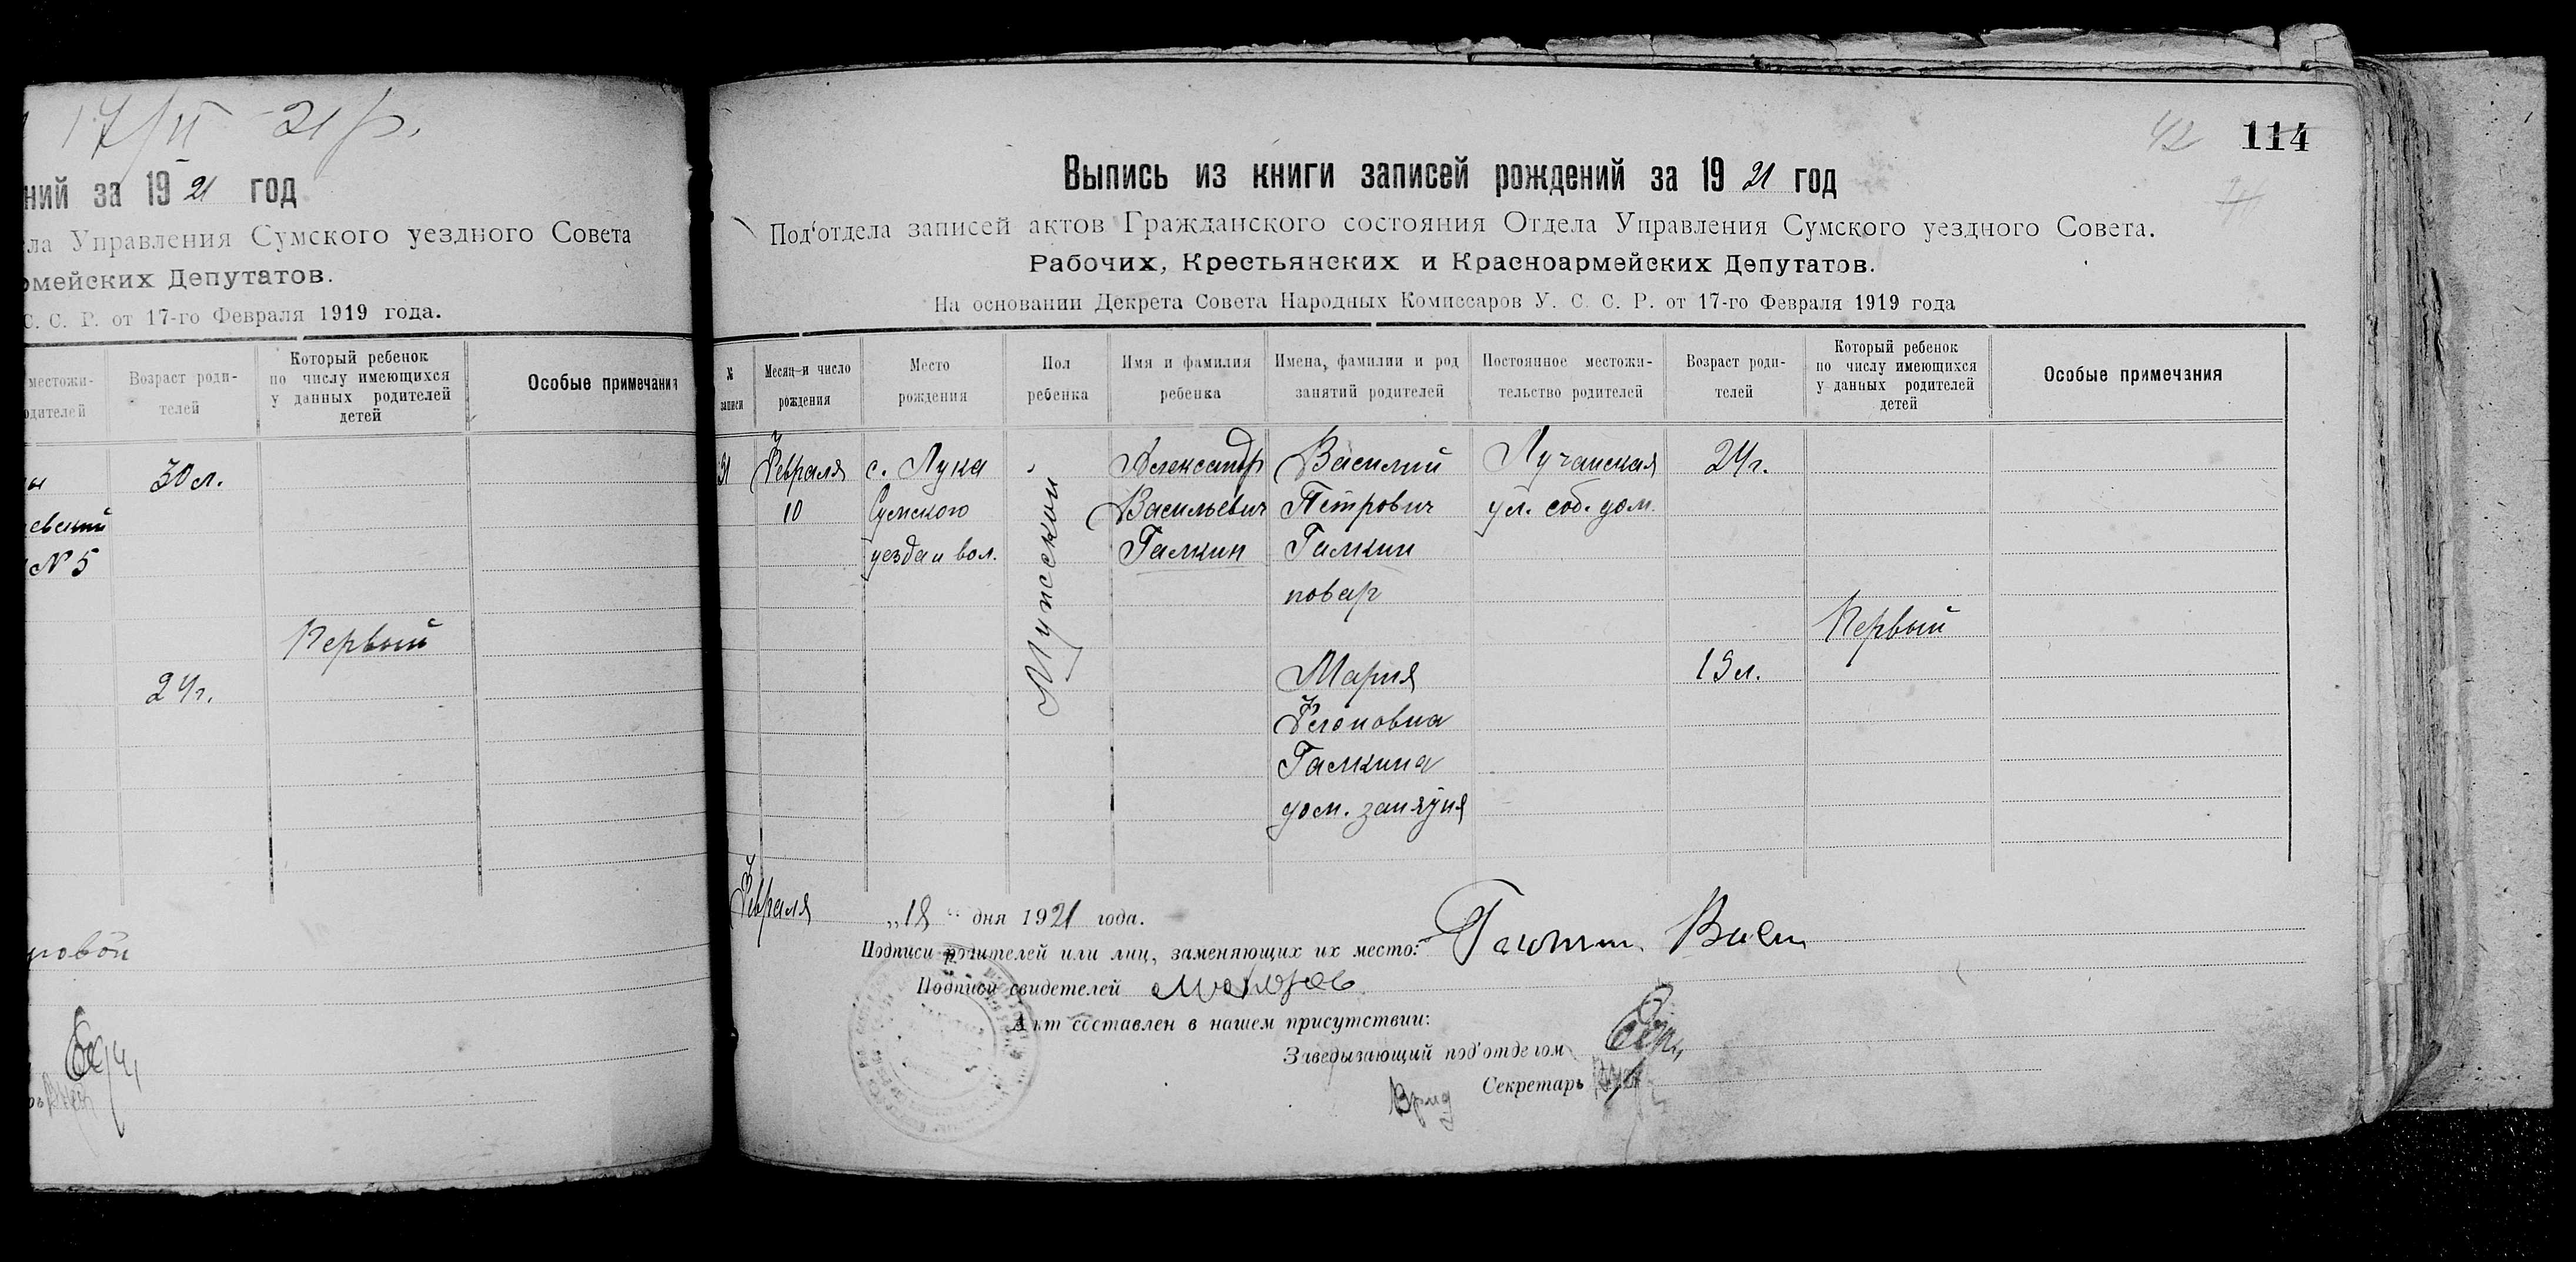 17/II - 21 р.
ний за 19 21 год
ла Управления Сумского уездного Совета
рмейских Депутатов.
С. С. Р. от 17-го Февраля 1919 года.
местожи-
одителей
Возраст роди-
телей
Который ребенок
по числу имеющихся
у данных родителей
детей
Особые примечания
30 л.
евский
№ 5
Первый
24 г.
42
114
Выпись из книги записей рождений за 19 21 год
Под'отдела записей актов Гражданского состояния Отдела Управления Сумского уездного Совета.
Рабочих, Крестьянских и Красноармейских Депутатов.
На основании Декрета Совета Народных Комиссаров У. С. С. Р. от 17-го Февраля 1919 года
№
записи
Месяц и число
рождения
Место
рождения
Пол
ребенка
Имя и фамилия
ребенка
Имена, фамилии и род
занятий родителей
Постоянное местожи-
тельство родителей
Возраст роди-
телей
Который ребенок
по числу имеющихся
у данных родителей
детей
Особые примечания
Февраля
10
с. Лука
Сумского
уезда и вол.
Мужской
Александр
Васильевич
Галкин
Василий
Петрович
Галкин
повар
Лучанская
ул. соб. дом.
24 г.
Первый
Мария
Агоповна
Галкина
дом. занятия
19 л.
Февраля „18“ дня 1921 года.
Подписи родителей или лиц, заменяющих их место:
Подписи свидетелей
Акт составлен в нашем присутствии:
Заведывающий под'отделом
Врид Секретарь